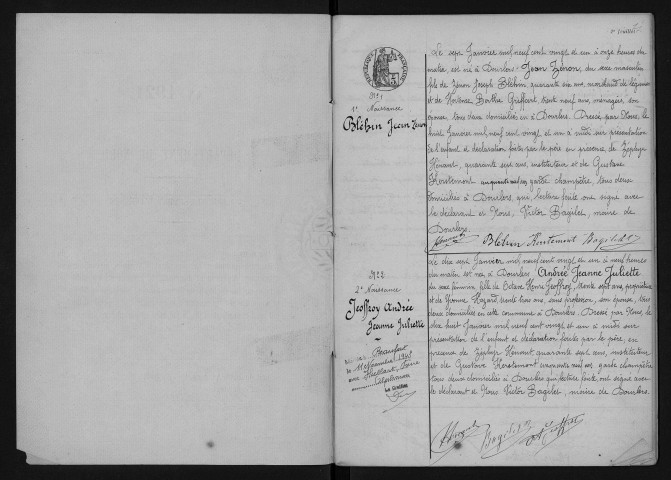 N° 1
1e Naissance
Bléhin Jean Zénon
Le sept Janvier mil neuf cent vingt et un à onze heures du
matin est né à Dourlers Jean Zénon, du sexe masculin
fils de Zénon Joseph Bléhin, quarante six ans, marchand de légumes
et de Hortense Berthe Griffart, trente neuf ans, ménagère, son
épouse, tous deux domiciliés en à Dourlers. Dressé par Nous, le
huit Janvier mil neuf cent vingt et un à midi sur présentation
de l'enfant et déclaration faites par le père en présence de Zéphyr
Hénaut, quarante sept ans, instituteur et de Gustave
Kerstemont cinquante ans, garde champêtre, tous deux
domiciliés à Dourlers, qui, lecture faite ont signé avec
le déclarant et Nous, Victor Bagilet, maire de
Dourlers.
Bléhin Kerstemont Bagilet
N° 2
2e Naissance
Jeoffroy Andrée
Jeanne Juliette
Beaufort
le 11 Novembre 1943
avec
Le Greffier
Le dix sept Janvier mil neuf cent vingt et un à neuf heures
du matin est née à Dourlers Andrée Jeanne Juliette
du sexe féminin fille de Octave Henri Jeoffroy, trente sept ans,
et de Yvonne Hazard, trente trois ans, sans profession, son épouse, tous
deux domiciliés en cette commune à Dourlers. Dressé par Nous, le
dix huit Janvier mil neuf cent vingt et un à midi sur
présentation de l'enfant et déclaration faites par le père, en
présence de Zéphyr Hénaut quarante sept ans, instituteur
et de Gustave Kerstemont cinquante ans, garde champêtre
tous deux domiciliés à Dourlers qui, lecture faite, ont signé avec
le déclarant et Nous Victor Bagilet, maire de Dourlers.
Bagilet